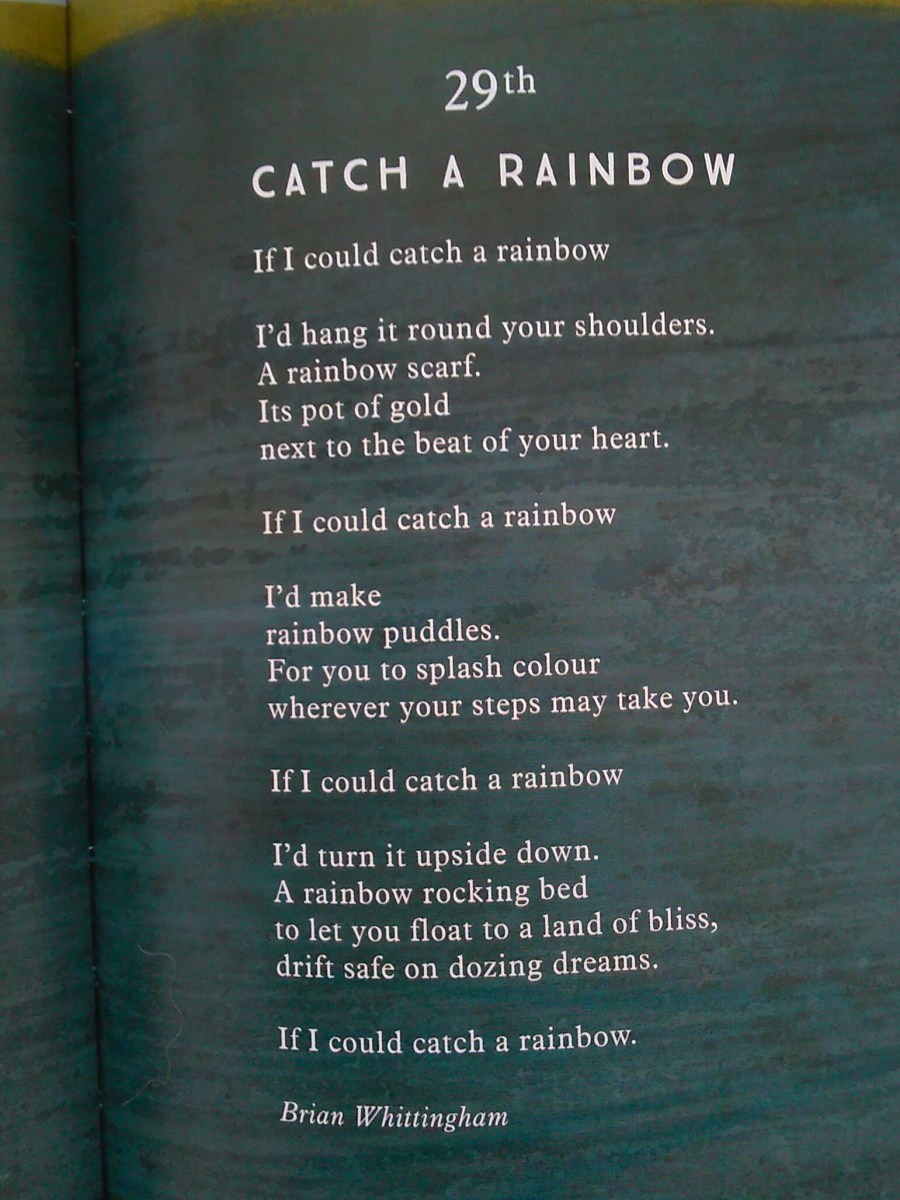 29th
CATCH A RAINBOW
If I could catch a rainbow
I'd hang it round your shoulders.
A rainbow scarf.
Its pot of gold
next to the beat of your heart.
If I could catch a rainbow
I'd make
rainbow puddles.
For you to splash colour
wherever your steps may take you.
If I could catch a rainbow
I'd turn it upside down.
A rainbow rocking bed
to let you float to a land of bliss,
drift safe on dozing dreams.
If I could catch a rainbow.
Brian Whittingham